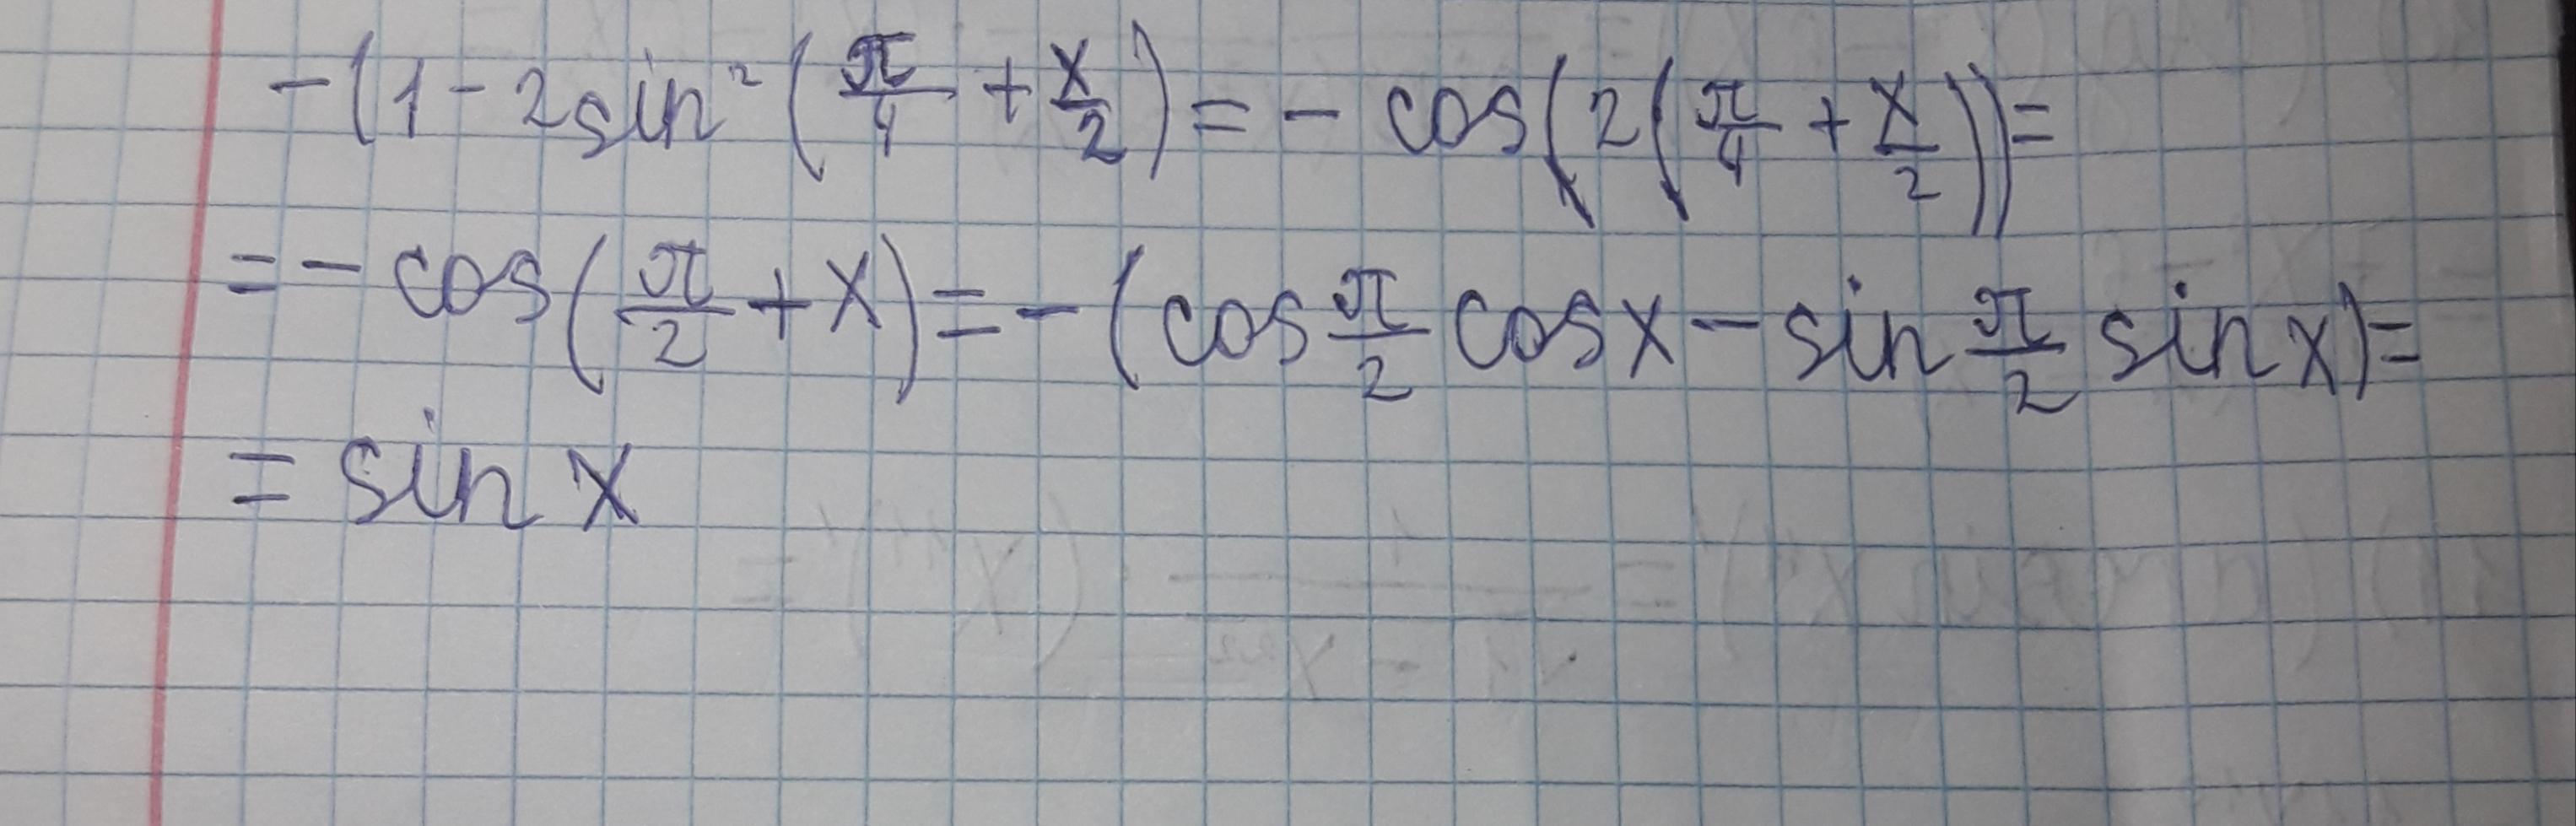 -(1-2sin²(π/4+x/2)=-cos(2(π/4+x/2))=
=-cos(π/2+x)=-(cos π/2 cos x-sin π/2 sin x)=
=sin x